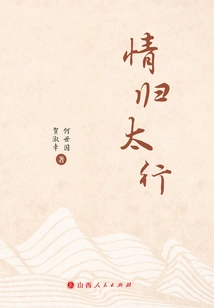 情归太行
何世国
贺淑幸
著
山西人民出版社